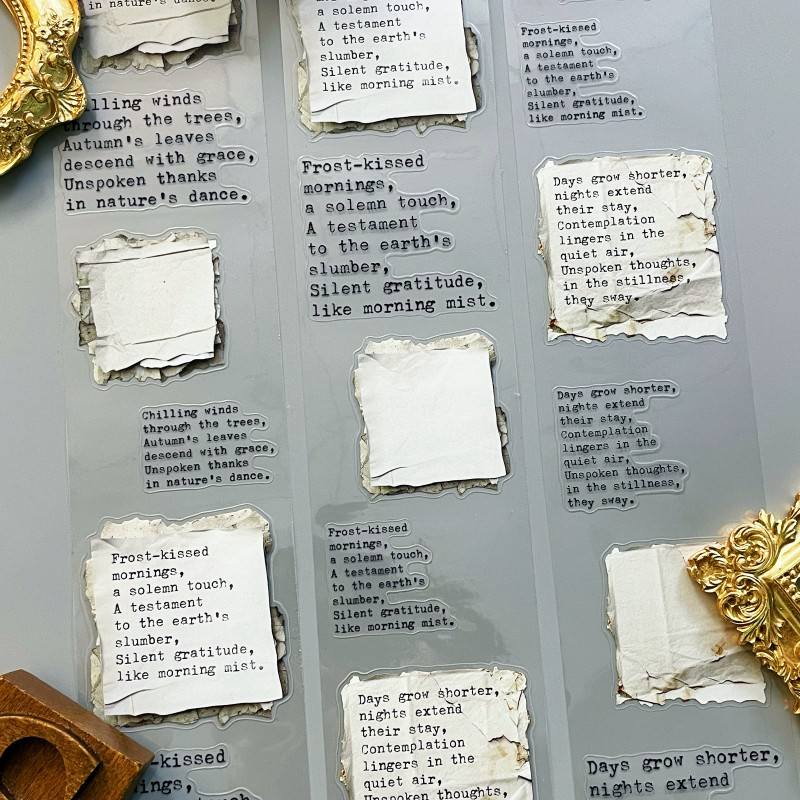 in nature's dance.
Chilling winds
through the trees,
Autumn's leaves
descend with grace,
Unspoken thanks
in nature's dance.
Chilling winds
through the trees,
Autumn's leaves
descend with grace,
Unspoken thanks
in nature's dance.
Frost-kissed
mornings,
a solemn touch,
A testament
to the earth's
slumber,
Silent gratitude,
like morning mist.
-kissed
ings,
touch,
a solemn touch,
A testament
to the earth's
slumber,
Silent gratitude,
like morning mist.
Frost-kissed
mornings,
a solemn touch,
A testament
to the earth's
slumber,
Silent gratitude,
like morning mist.
Frost-kissed
mornings,
a solemn touch,
A testament
to the earth's
slumber,
Silent gratitude,
like morning mist.
Days grow shorter,
nights extend
their stay,
Contemplation
lingers in the
quiet air,
Unspoken thoughts,
Frost-kissed
mornings,
a solemn touch,
A testament
to the earth's
slumber,
Silent gratitude,
like morning mist.
Days grow shorter,
nights extend
their stay,
Contemplation
lingers in the
quiet air,
Unspoken thoughts,
in the stillness,
they sway.
Days grow shorter,
nights extend
their stay,
Contemplation
lingers in the
quiet air,
Unspoken thoughts,
in the stillness,
they sway.
Days grow shorter,
nights extend